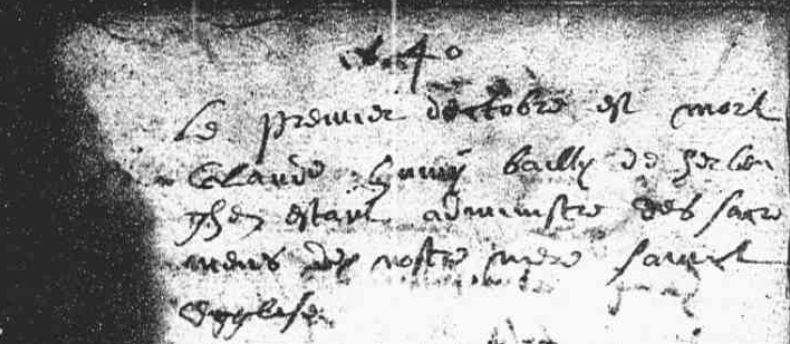 Le premier doctobre est mort
Claude bailly de
estant administre des sacre
mens de nostre mere sainct
Egglise